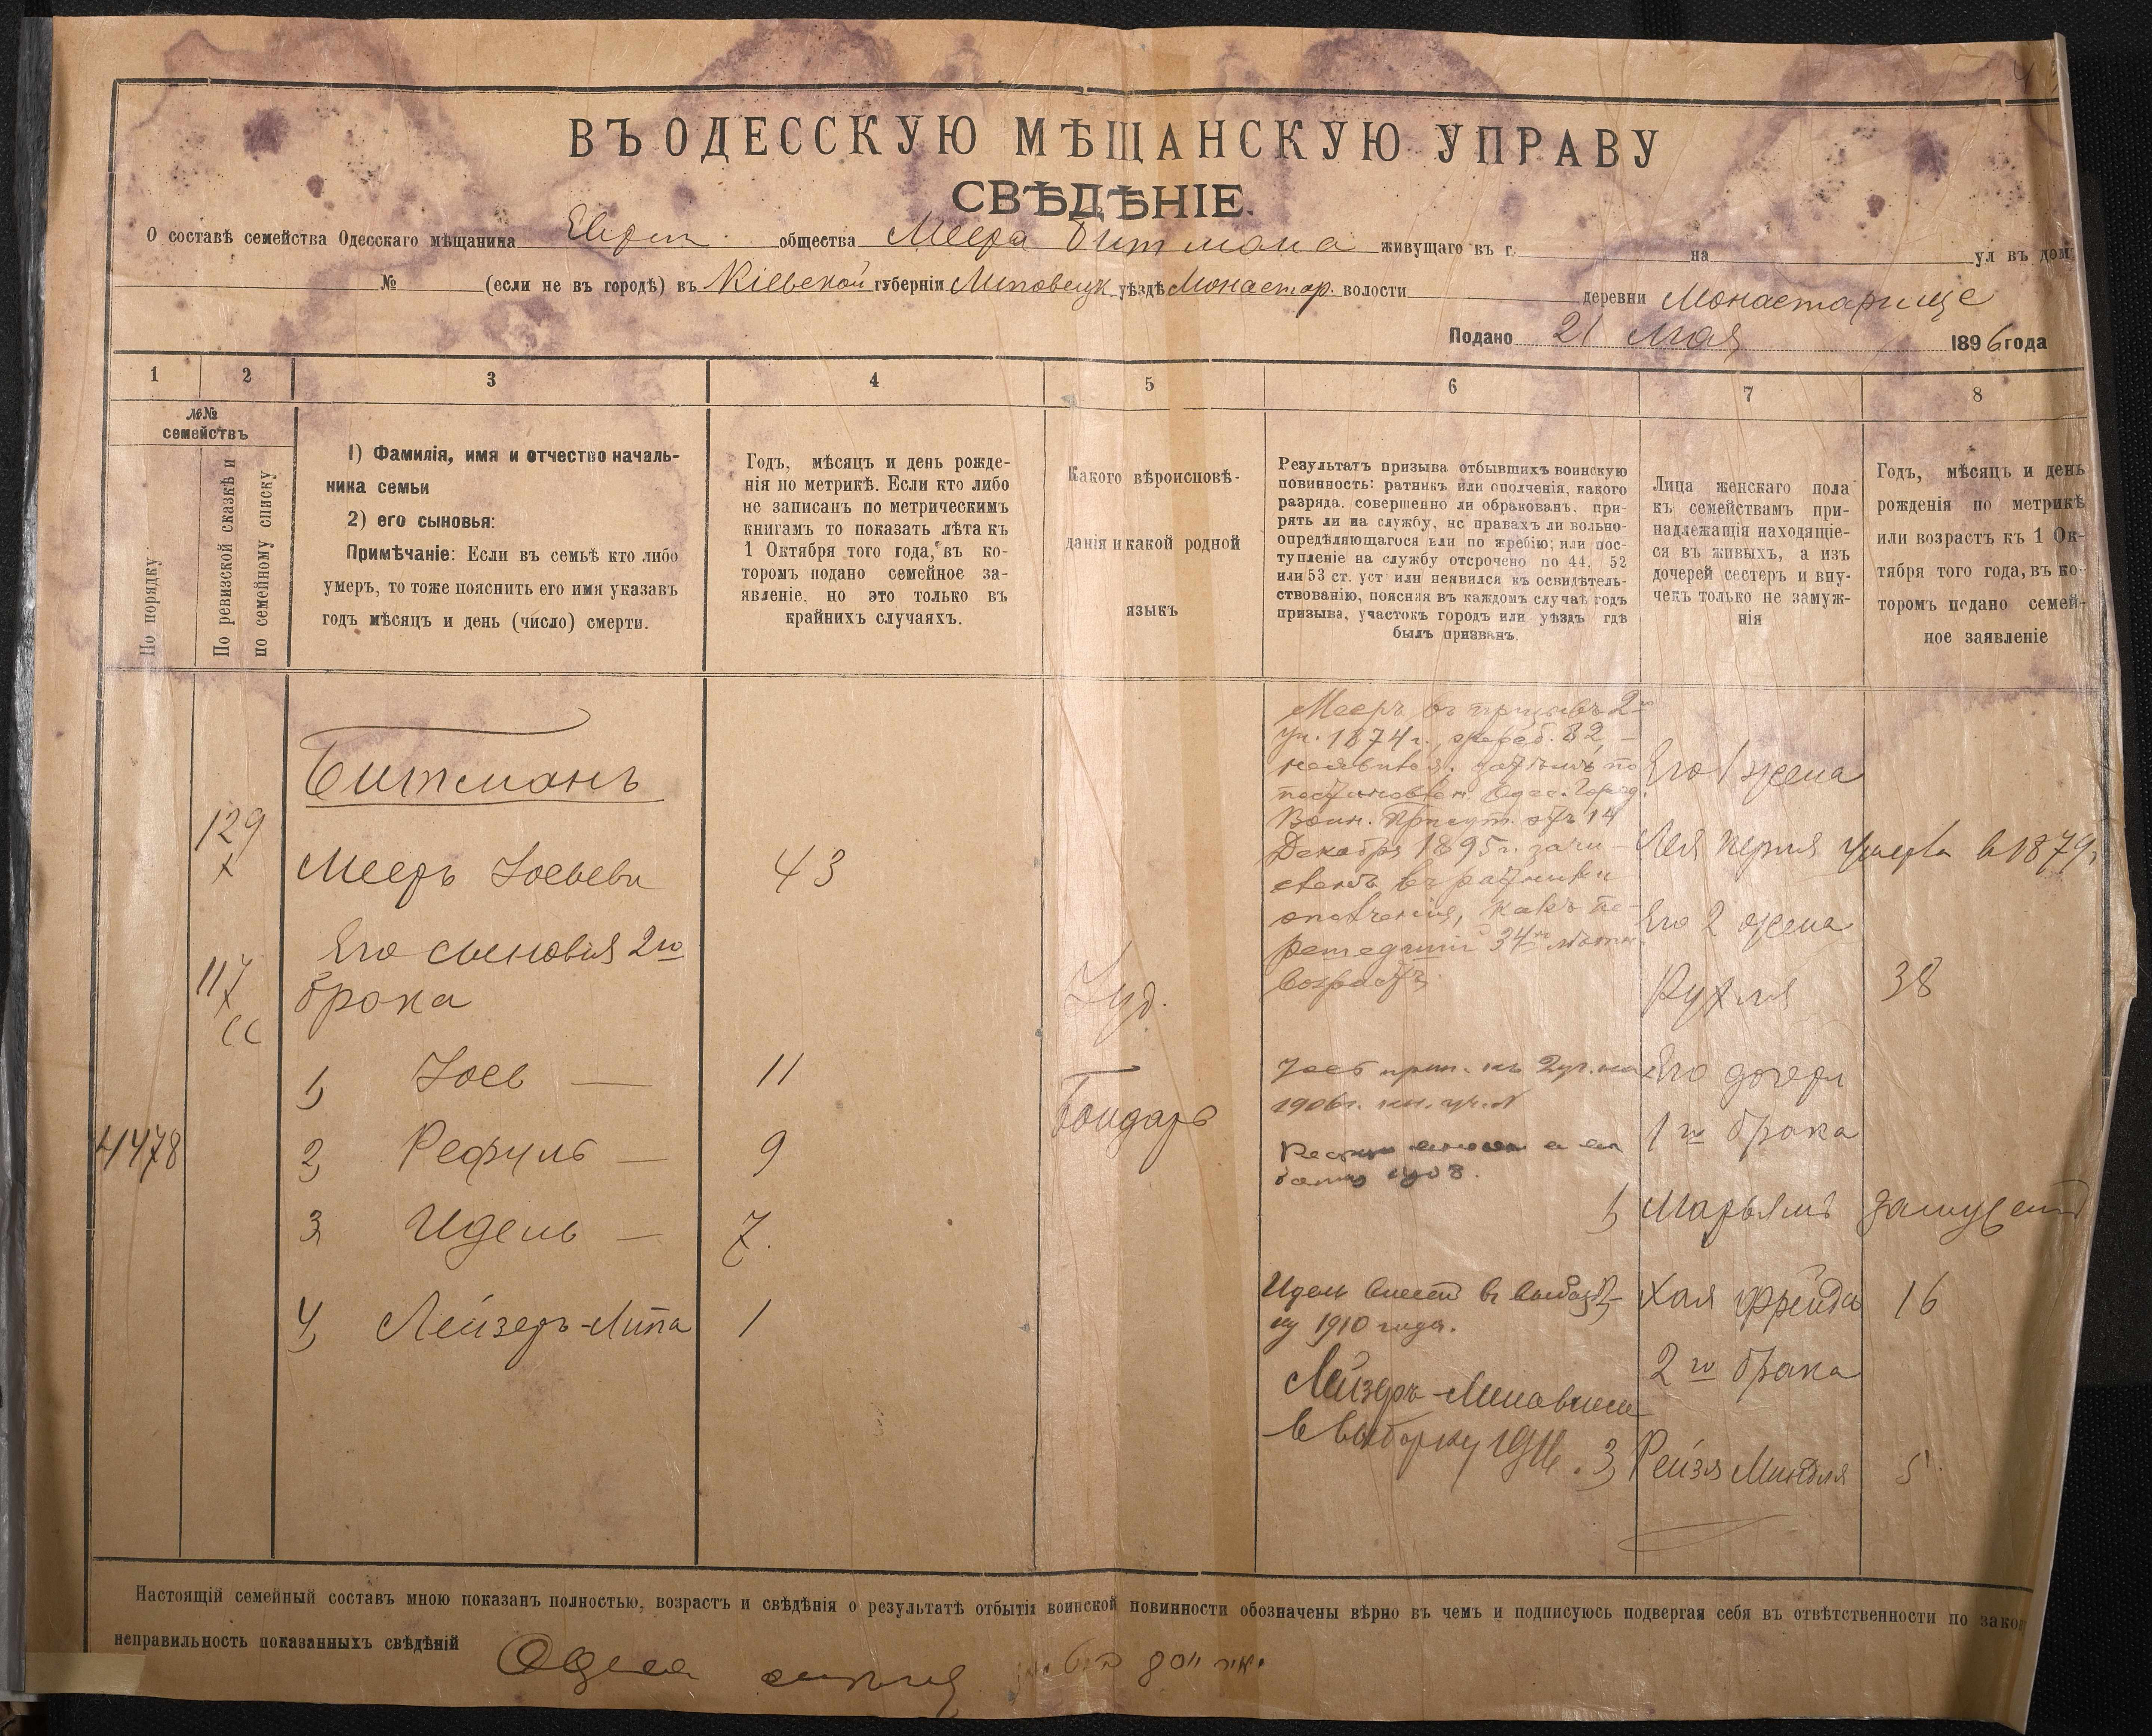 ВЪ ОДЕССКУЮ МѢЩАНСКУЮ УПРАВУ
СВѢДѢНІЕ.
О составѣ семейства Одесскаго мѣщанина Еврей. общества Меера Битмана живущаго въ г. на ул въ дом
№ (если не въ городѣ) въ Кіевской губерніи Липовецк. уѣздѣ Монастыр. волости деревни Монастарище
Подано 21 Мая 1896 года
1 2 3 4 5 6 7 8
№№ семействъ
По порядку
По ревизской сказкѣ и
по семейному списку
1) Фамилія, имя и отчество началь-
ника семьи
2) его сыновья:
Примѣчаніе: Если въ семьѣ кто либо
умеръ, то тоже пояснить его имя указавъ
годъ мѣсяцъ и день (число) смерти.
Годъ, мѣсяцъ и день рожде-
нія по метрикѣ. Если кто либо
не записанъ по метрическимъ
книгамъ то показать лѣта къ
1 Октября того года, въ ко-
торомъ подано семейное за-
явленіе, но это только въ
крайнихъ случаяхъ.
Какого вѣроисповѣ-
данія и какой родной
языкъ
Результатъ призыва отбывшихъ воинскую
повинность: ратникъ или ополченія, какого
разряда, совершенно ли обракованъ, при-
рять ли на службу, нс правахъ ли вольно-
опредѣляющагося или по жребію; или пос-
тупленіе на службу отсрочено по 44, 52
или 53 ст. уст или неявился къ освидѣтель-
ствованію, поясняя въ каждомъ случаѣ годъ
призыва, участокъ городъ или уѣздъ гдѣ
былъ призванъ.
Лица женскаго пола
къ семействамъ при-
надлежащія находящіе-
ся въ живыхъ, а изъ
дочерей сестеръ и вну-
чекъ только не замуж-
нія
Годъ, мѣсяцъ и день
рожденія по метрикѣ
или возрастъ къ 1 Ок-
тября того года, въ ко-
торомъ подано семей-
ное заявленіе
4478
129
х
117
х
сс
Битманъ
Мееръ Іосьеви 43
Его сыновья 2го
брака
1) Іось — 11
2) Рефуль — 9
3) Идель — 7.
4) Лейзеръ-Липа 1
Іуд.
Бондарь
Мееръ въ призывъ 2го
уч. 1874 г., жреб. 82, —
неявился, затѣмъ по
постановлен. Одес. Город.
Воин. Присут. отъ 14
Декабря 1895 г. зачи-
сленъ въ ратники
ополченія, какъ пе-
решедшій 34хъ лѣтн.
возрастъ.
Іось прип. къ 2 уч. на
1906 г.
1908.
Идель внесен в выбор-
ку 1910 года.
Лейзеръ-Липа внесен
в выборку 1916.
Его 1 жена
Лея Перля умерла в 1879
Его 2 жена
Рухля 38
Его дочери
1го брака
1) Марьямъ замужем
2) Хая Фрейда 16
2го брака
3) Рейзя Миндля 5
Настоящій семейный составъ мною показанъ полностью, возрастъ и свѣдѣнія о результатѣ отбытія воинской повинности обозначены вѣрно въ чемъ и подписуюсь подвергая себя въ отвѣтственности по закон
неправильность показанныхъ свѣдѣній